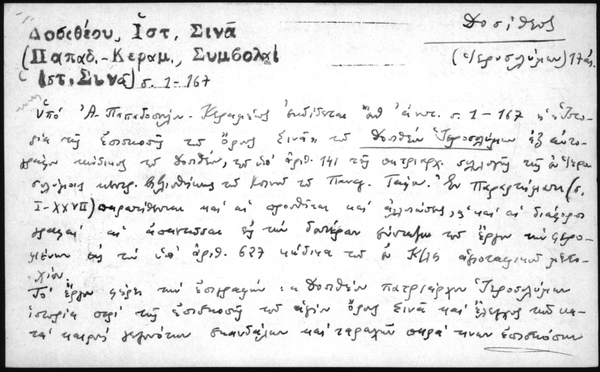 Δοσιθέου, Ἱστ. Σινᾶ
Δοσίθεος
(Παπαδ.-Κεραμ., Συμβολαὶ
(Ἱεροσολύμων) 17 αἰ.
ἱστ. Σινᾶ) σ. 1-167
Ὑπὸ Ἀ. Παπαδοπούλου-Κεραμέως ἐκδίδεται σ. 1-167 ἡ ἱστο-
ρία τῆς ἐπισκοπῆς τοῦ ὄρους Σινᾶ τοῦ Δοσιθέου Ἱεροσολύμων ἐξ αὐτο-
γράφου κώδικος τοῦ Δοσιθέου, τοῦ ὑπ' ἀριθ. 141 τῆς πατριαρχ. συλλογῆς τῆς ἐν Ἱερο-
σολύμοις κεντρ. βιβλιοθήκης τοῦ Κοινοῦ τοῦ Παναγ. Τάφου. Ἐν Παραρτήματι (σ.
I-XXVII) παρατίθενται καὶ αἱ προσθῆκαι καὶ ἀλλοιώσεις καὶ αἱ διάφοροι
γραφαὶ αἱ ἀπαντῶσαι εἰς τὴν δευτέραν σύνταξιν τοῦ ἔργου τὴν φερο-
μένην εἰς τὸν ὑπ' ἀριθ. 627 κώδικα τοῦ ἐν Κ/λει ἁγιοταφικοῦ μετο-
χίου.
Τὸ ἔργον φέρει τὴν ἐπιγραφήν: Δοσιθέου πατριάρχου Ἱεροσολύμων
ἱστορία περὶ τῆς ἐπισκοπῆς τοῦ ἁγίου ὄρους Σινᾶ καὶ ἔλεγχος τῶν κα-
τὰ καιροὺς γεγονότων σκανδάλων καὶ ταραχῶν παρά τινων ἐπισκόπων